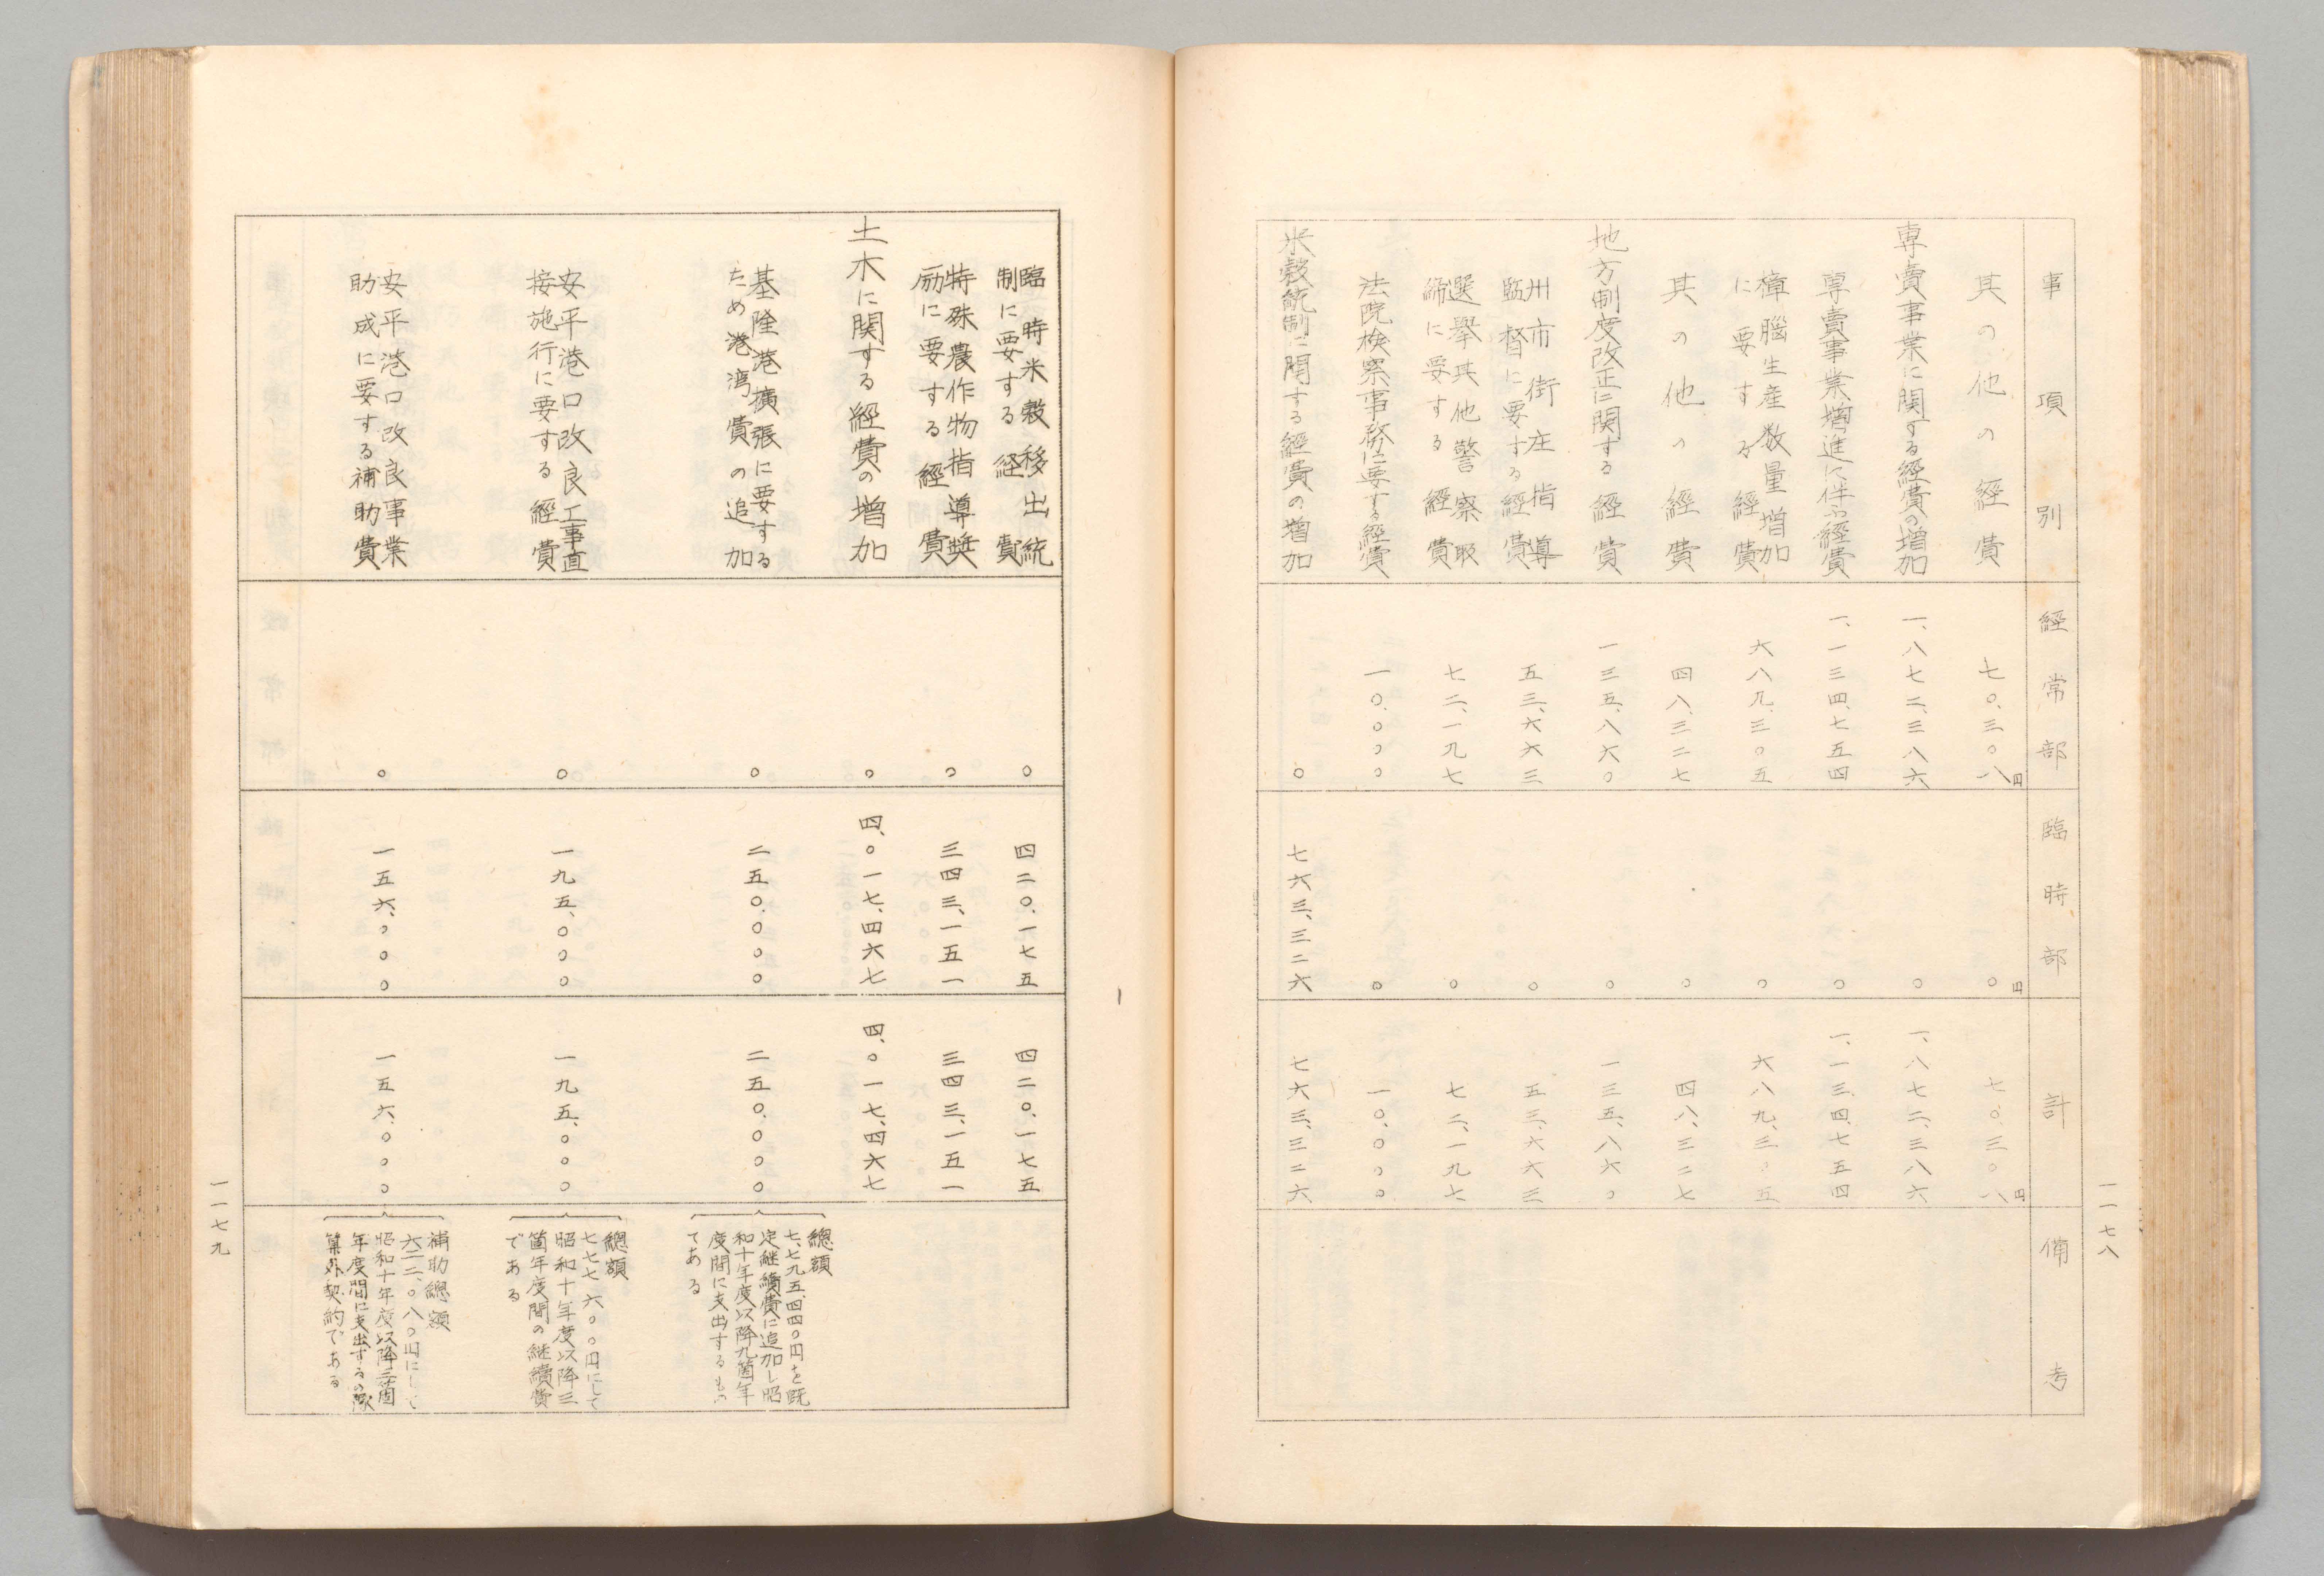 事項別
經常部
臨時部
計
備考
其の他の經費
七〇、三〇八円
〇円
七〇、三〇八円
専賣事業に関する經費の増加
一、八七二、三八六
〇
一、八七二、三八六
専賣事業増進に伴ふ經費
一、一三四、七五四
〇
一、一三四、七五四
樟腦生産数量増加
に要する經費
六八九、三〇五
〇
六八九、三〇五
其の他の經費
四八、三二七
〇
四八、三二七
地方制度改正に関する經費
一三五、八六〇
〇
一三五、八六〇
州市街庄指導
監督に要する經費
五三、六六三
〇
五三、六六三
選擧其他警察取
締に要する經費
七二、一九七
〇
七二、一九七
法院検察事務に要する經費
一〇、〇〇〇
〇
一〇、〇〇〇
米穀統制に関する經費の増加
〇
七六三、三二六
七六三、三二六
一一七八
臨時米穀移出統
制に要する經費
〇
四二〇、一七五
四二〇、一七五
特殊農作物指導奬
励に要する經費
〇
三四三、一五一
三四三、一五一
土木に関する經費の増加
〇
四、〇一七、四六七
四、〇一七、四六七
基隆港擴張に要する
ため港湾費の追加
〇
二五〇、〇〇〇
二五〇、〇〇〇
總額
七、七九五、四四〇円を既
定継續費に追加し昭
和十年度以降九箇年
度間に支出するもの
てある
安平港口改良工事直
接施行に要する經費
〇
一九五、〇〇〇
一九五、〇〇〇
總額
七七七、六〇〇円にして
昭和十年度以降三
箇年度間の継續費
である
安平港口改良事業
助成に要する補助費
〇
一五六、〇〇〇
一五六、〇〇〇
補助總額
六二二、〇八〇円にして
昭和十年度以降三箇
年度間に支出するの豫
算外契約である
一一七九